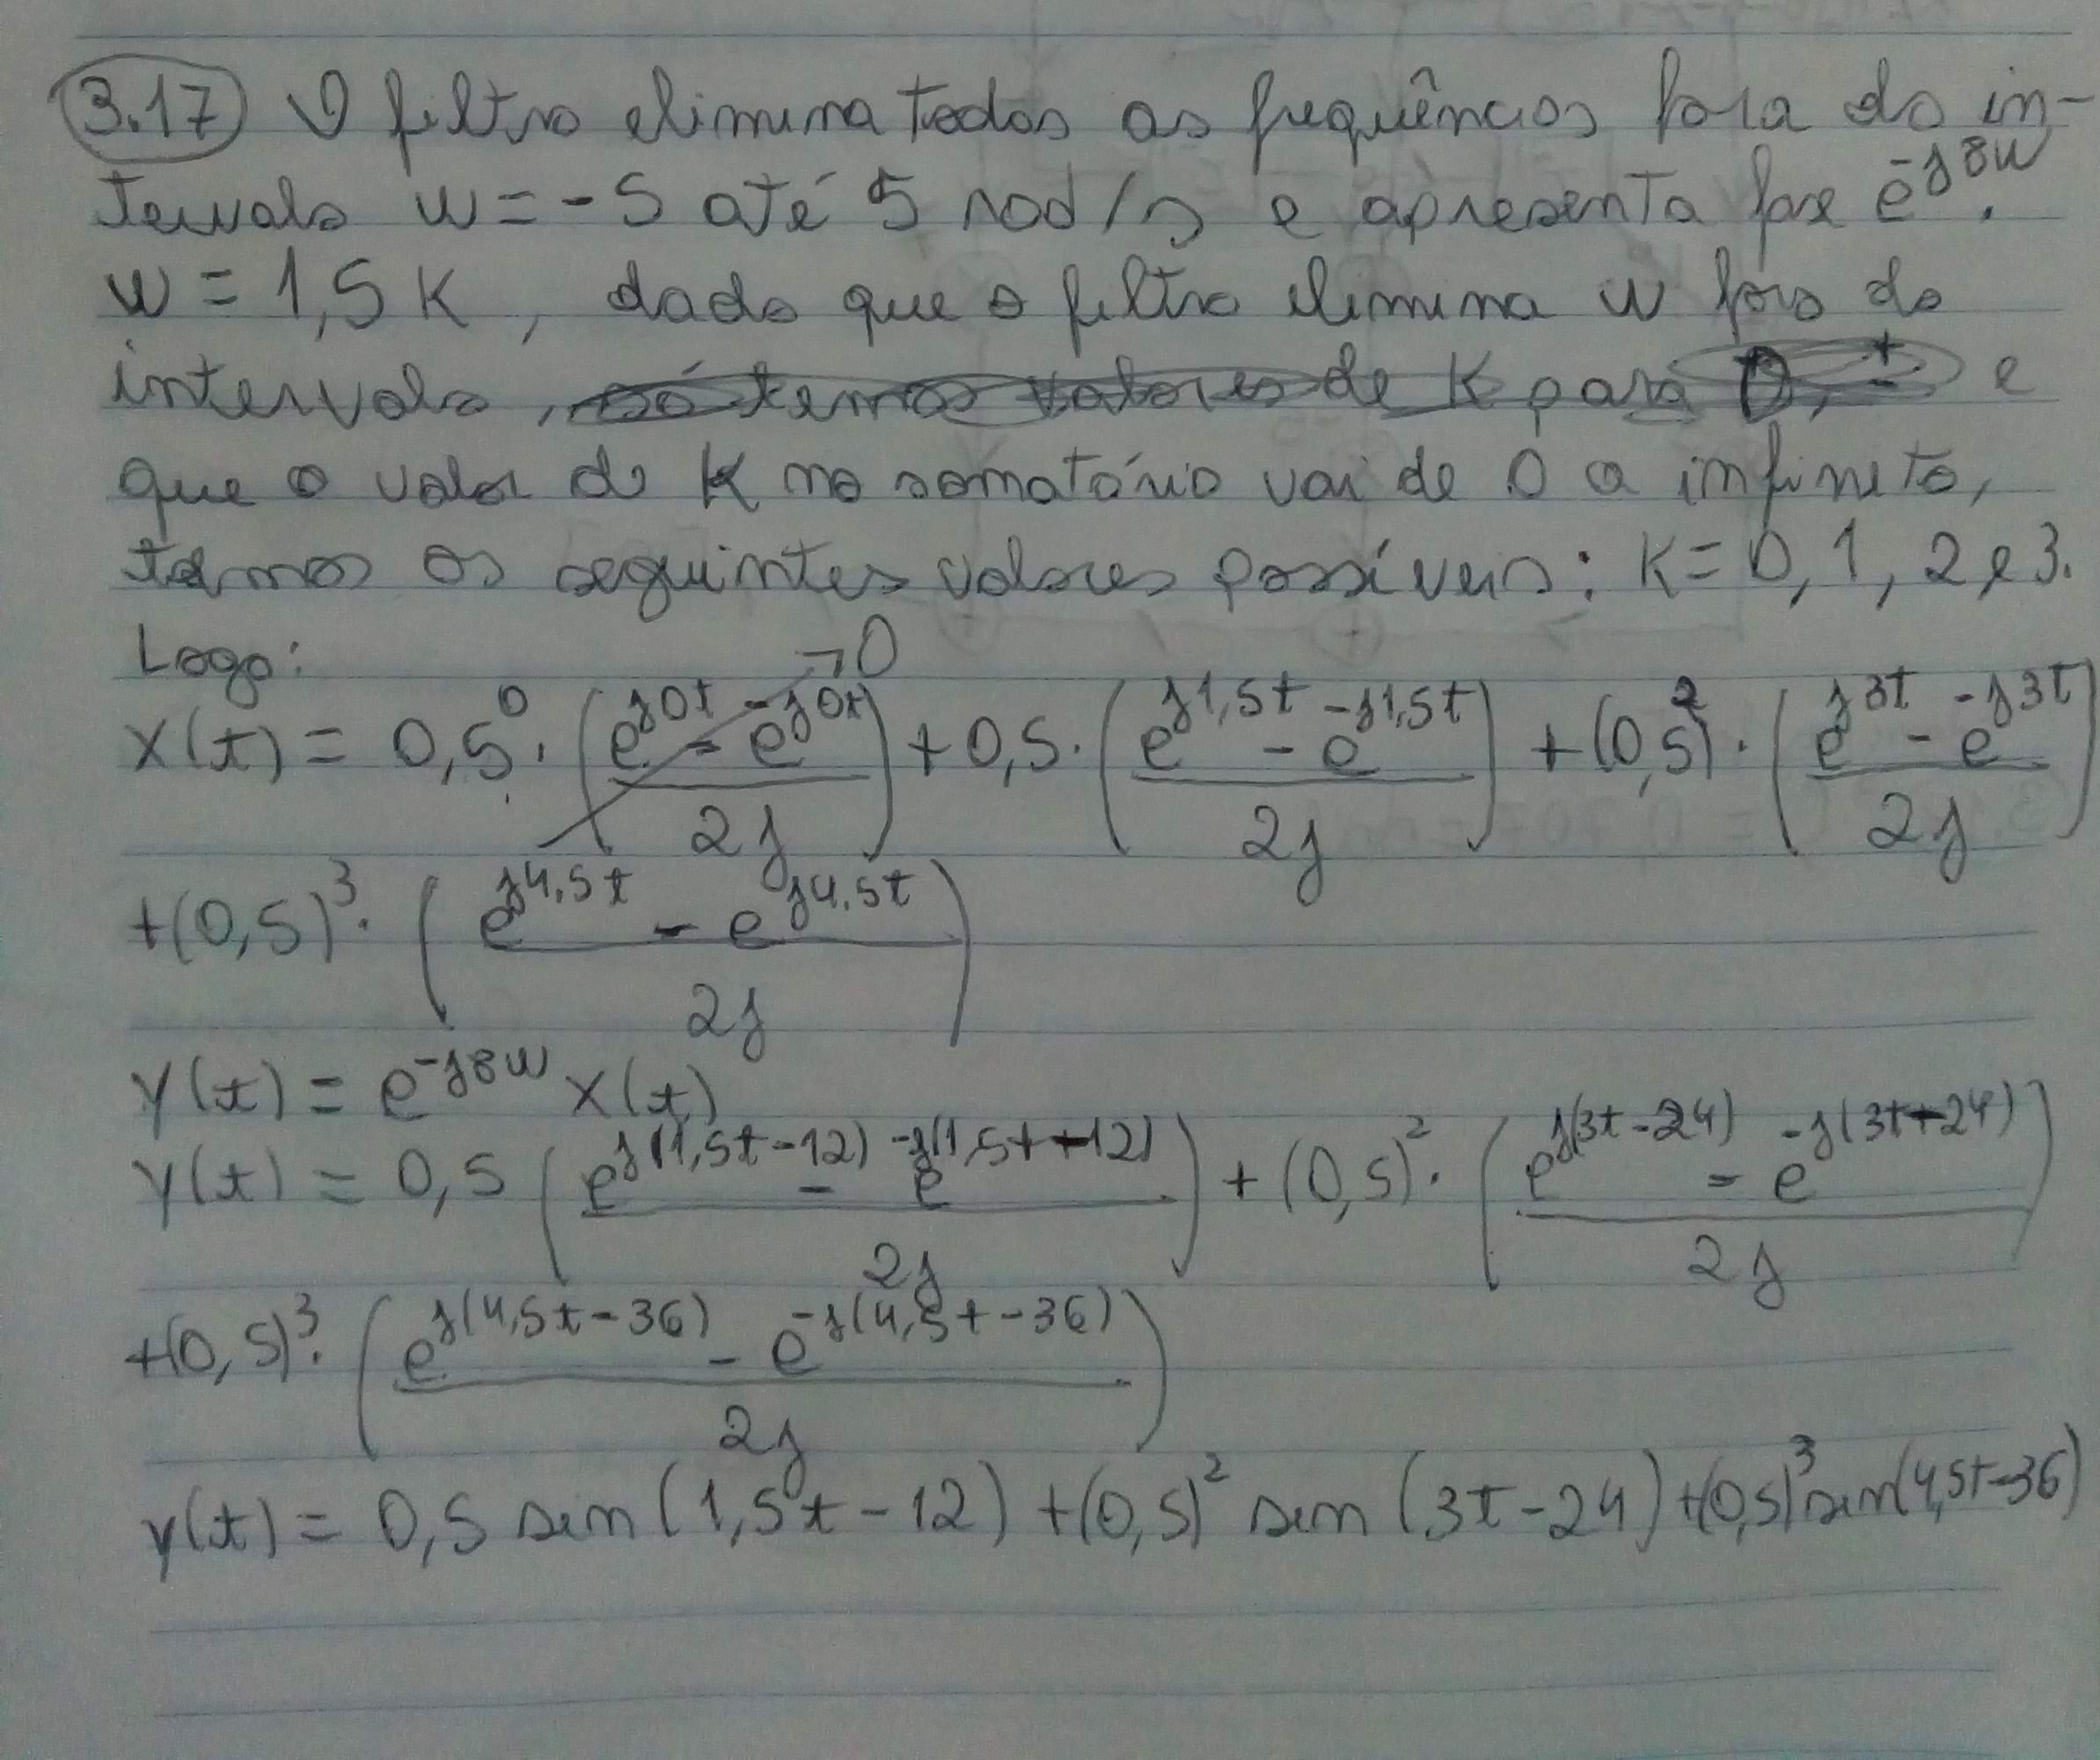 3.17 O filtro elimina todas as frequências fora do in-
tervalo w = -5 até 5 rad/s e apresenta fase e^{-j8w}.
w = 1,5 K, dado que o filtro elimina w fora do
intervalo, só temos valores de K para 0, e
que o valor do K no somatório vai de 0 a infinito,
temos os seguintes valores possíveis: K = 0, 1, 2 e 3.
Logo:
x(t) = 0,5^0 · ((e^{j0t} - e^{-j0t})/2j) → 0 + 0,5 · ((e^{j1,5t} - e^{-j1,5t})/2j) + (0,5)^2 · ((e^{j3t} - e^{-j3t})/2j)
+ (0,5)^3 · ((e^{j4,5t} - e^{j4,5t})/2j)
y(t) = e^{-j8w} x(t)
y(t) = 0,5 ((e^{j(1,5t-12)} - e^{-j(1,5t-12)})/2j) + (0,5)^2 · ((e^{j(3t-24)} - e^{-j(3t-24)})/2j)
+ (0,5)^3 · ((e^{j(4,5t-36)} - e^{-j(4,5t-36)})/2j)
y(t) = 0,5 sen (1,5t - 12) + (0,5)^2 sen (3t - 24) + (0,5)^3 sen(4,5t - 36)